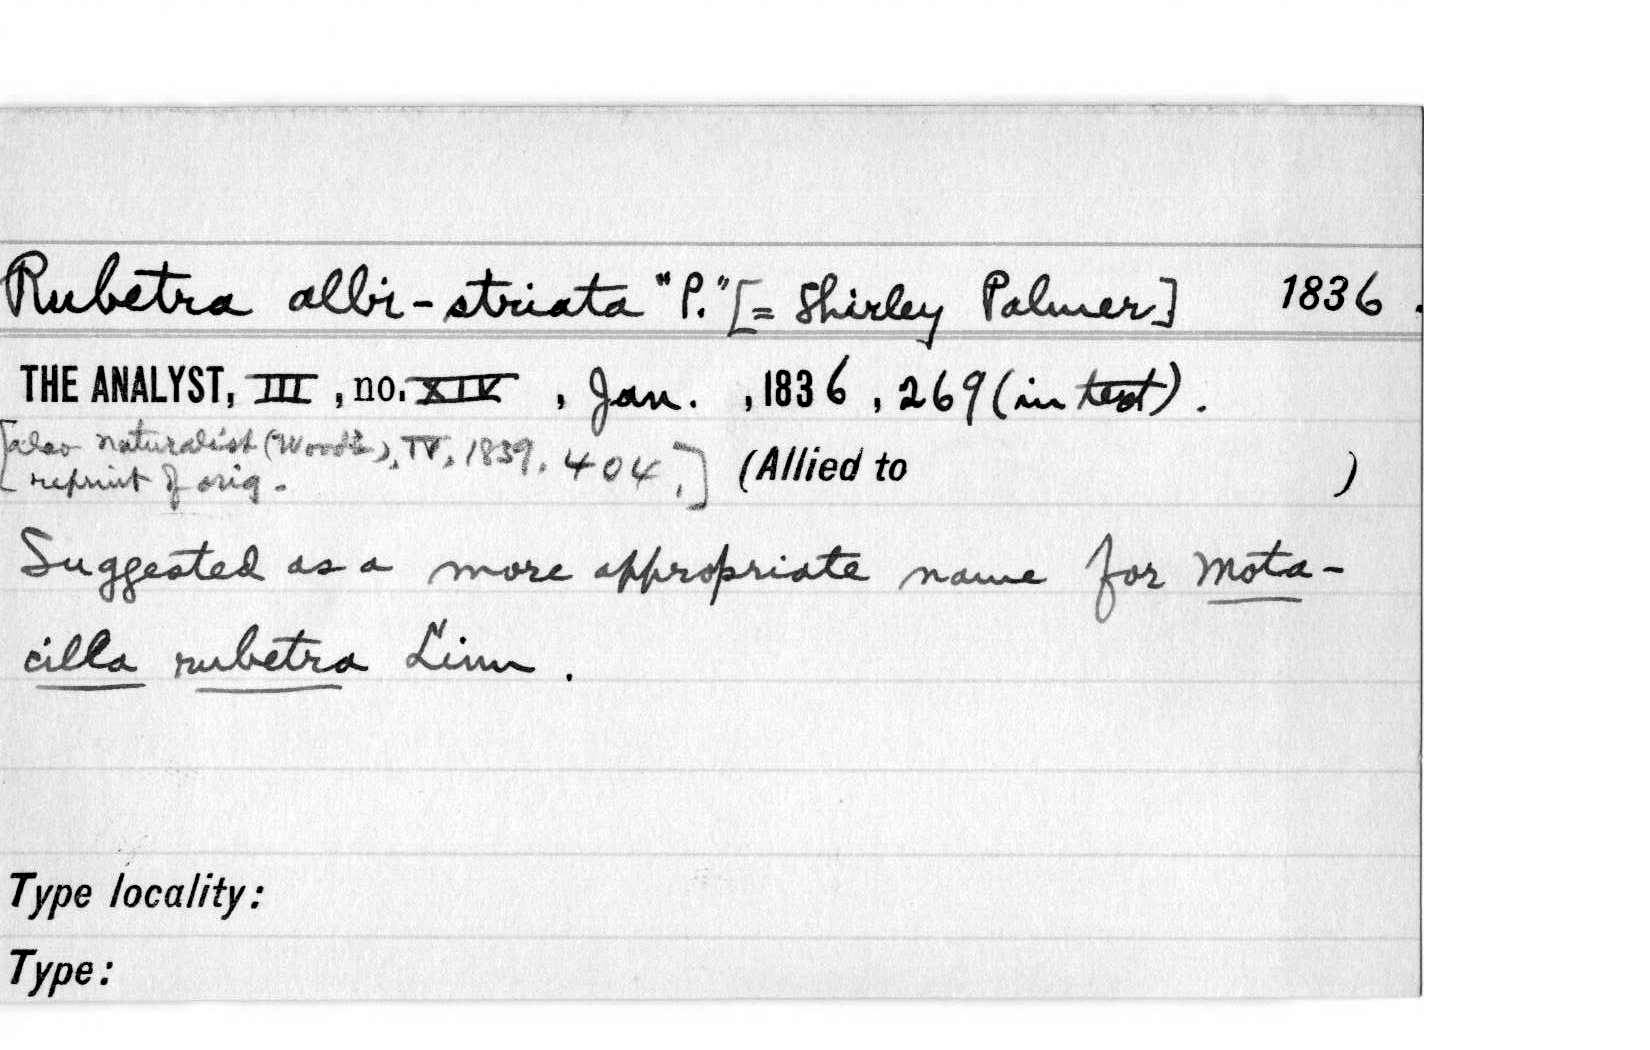 Rubetra albi-striata "P." [= Shirley Palmer] 1836.
THE ANALYST, III, no. XIV, Jan., 1836, 269 (in text).
[also Naturalist (Wood's), IV, 1839, 404,] (Allied to )
reprint of orig.
Suggested as a more appropriate name for Mota-
cilla rubetra Linn.
Type locality:
Type: